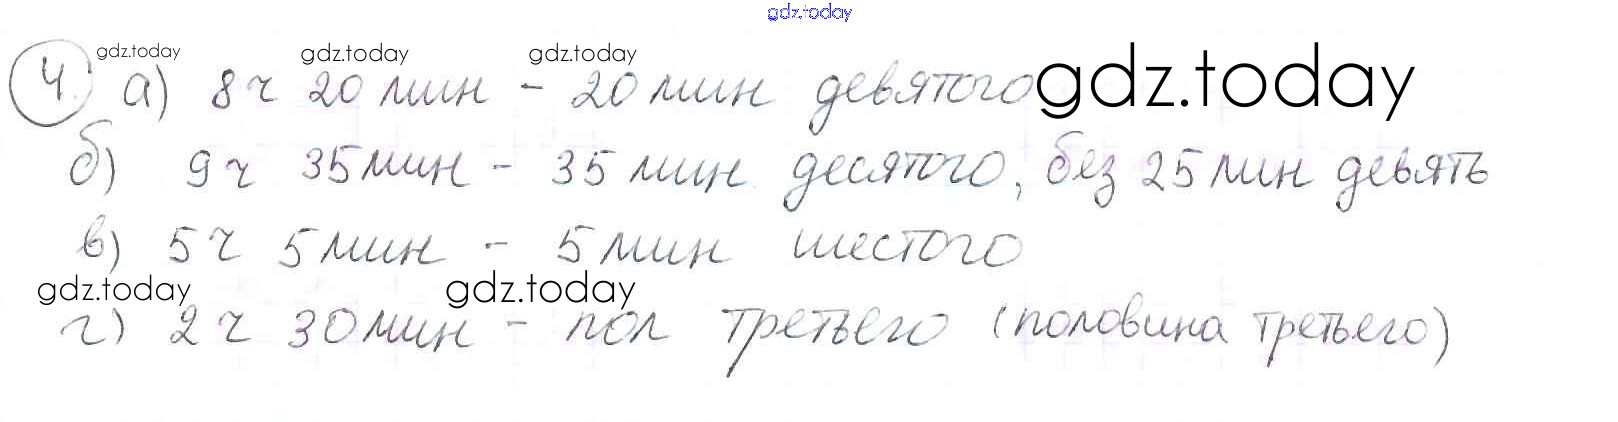 gdz.today
gdz.today gdz.today gdz.today
4. а) 8ч 20 мин - 20 мин девятого gdz.today
б) 9ч 35 мин - 35 мин десятого, без 25 мин девять
в) 5ч 5 мин - 5 мин шестого
gdz.today gdz.today
г) 2 ч 30 мин - пол третьего (половина третьего)